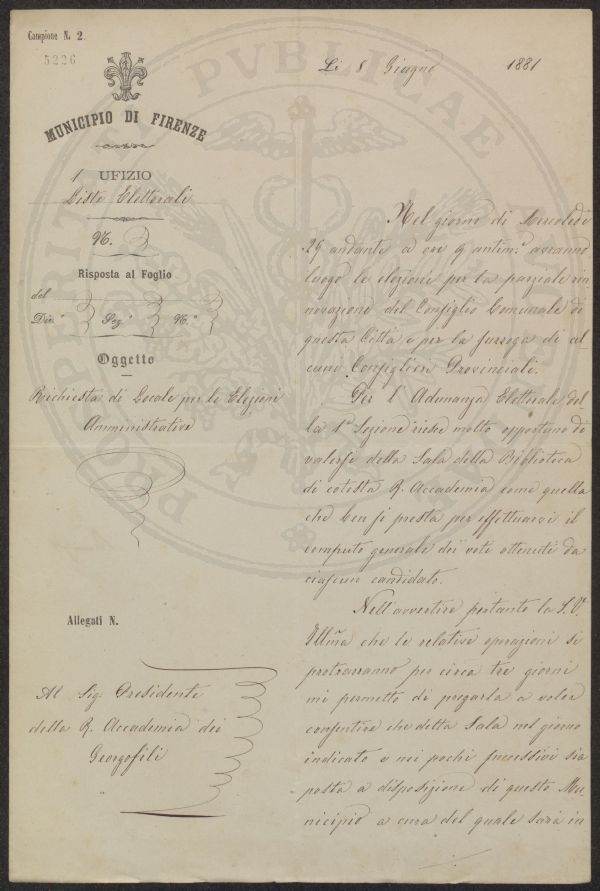 Campione N. 2.
5226
Li 8 Giugno 1881
MUNICIPIO DI FIRENZE
1 UFIZIO
Liste Elettorali
N.
Risposta al Foglio
del
Div.e Sez.e N.o
Oggetto
Richiesta di Locale per le Elezioni
Amministrative
Allegati N.
Al Sig. Presidente
della R. Accademia dei
Georgofili
Nel giorno di Mercoledì
29 andante a ore 9 antim.e avranno
luogo le elezioni per la parziale rin
novazione del Consiglio Comunale di
questa Città e per la surroga di al
cuni Consiglieri Provinciali.
Per l'Adunanza Elettorale del
la 1a Sezione riesce molto opportuno di
valersi della Sala della Biblioteca
di cotesta R. Accademia come quella
che ben si presta per effettuarvi il
computo generale dei voti ottenuti da
ciascun candidato.
Nell'avvertire pertanto la S. V.
Illma che le relative operazioni si
protrarranno per circa tre giorni
mi permetto di pregarla a voler
consentire che detta Sala nel giorno
indicato e nei pochi successivi sia
posta a disposizione di questo Mu
nicipio a cura del quale sarà in
PROSPERITATI PVBLICAE